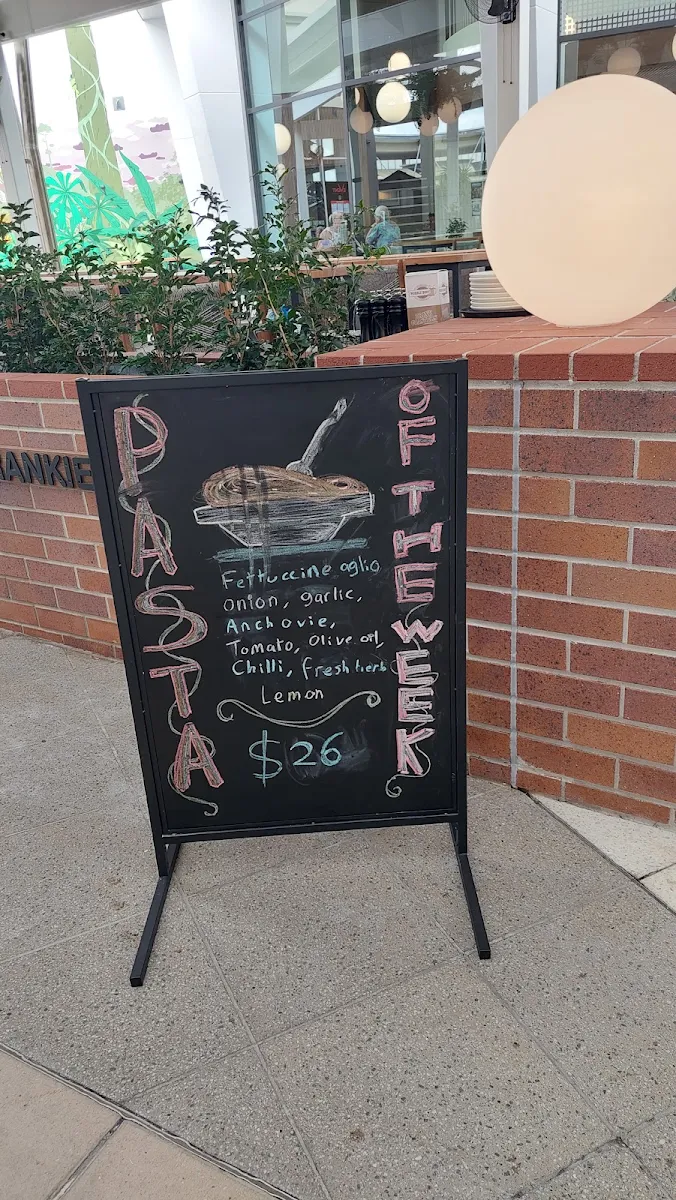 PASTA
OF THE WEEK
Fettuccine aglio
onion, garlic,
Anchovie,
Tomato, Olive oil,
Chilli, fresh herb
Lemon
$26
ANKIE